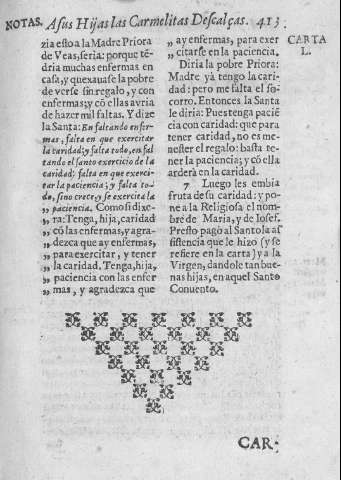 NOTAS. A sus Hijas las Carmelitas Descalças. 413
zia esto a la Madre Priora
de Veas, seria: porque tẽ-
dria muchas enfermas en
casa, y quexauase la pobre
de verse sin regalo, y con
enfermas; y cõ ellas avria
de hazer mil faltas. Y dize
la Santa: En faltando enfer-
mas, falta en que exercitar
la caridad; y falta todo, en fal
tando el santo exercicio de la
caridad: falta en que exerci-
tar la paciencia; y falta to-
do, sino crece, y se exercita la
„ paciencia. Como si dixe-
„ ra: Tenga, hija, caridad
„ cõ las enfermas, y agra-
„ dezca que ay enfermas,
„ para exercitar, y tener
„ la caridad. Tenga, hija,
„ paciencia con las enfer
„ mas, y agradezca que
„ ay enfermas, para exer
„ citarse en la paciencia.
Diria la pobre Priora:
Madre yà tengo la cari-
dad: pero me falta el so-
corro. Entonces la Santa
le diria: Pues tenga paciẽ
cia con caridad: que para
tener caridad, no es me-
nester el regalo: basta te-
ner la paciencia; y cõ ella
arderà en la caridad.
7 Luego les embia
fruta de su caridad: y po-
ne a la Religiosa el nom-
bre de Maria, y de Iosef.
Presto pagò al Santo la as
sistencia que le hizo (y se
refiere en la carta) y a la
Virgen, dandole tan bue-
nas hijas, en aquel Santo
Conuento.
CARTA
L.
CAR-